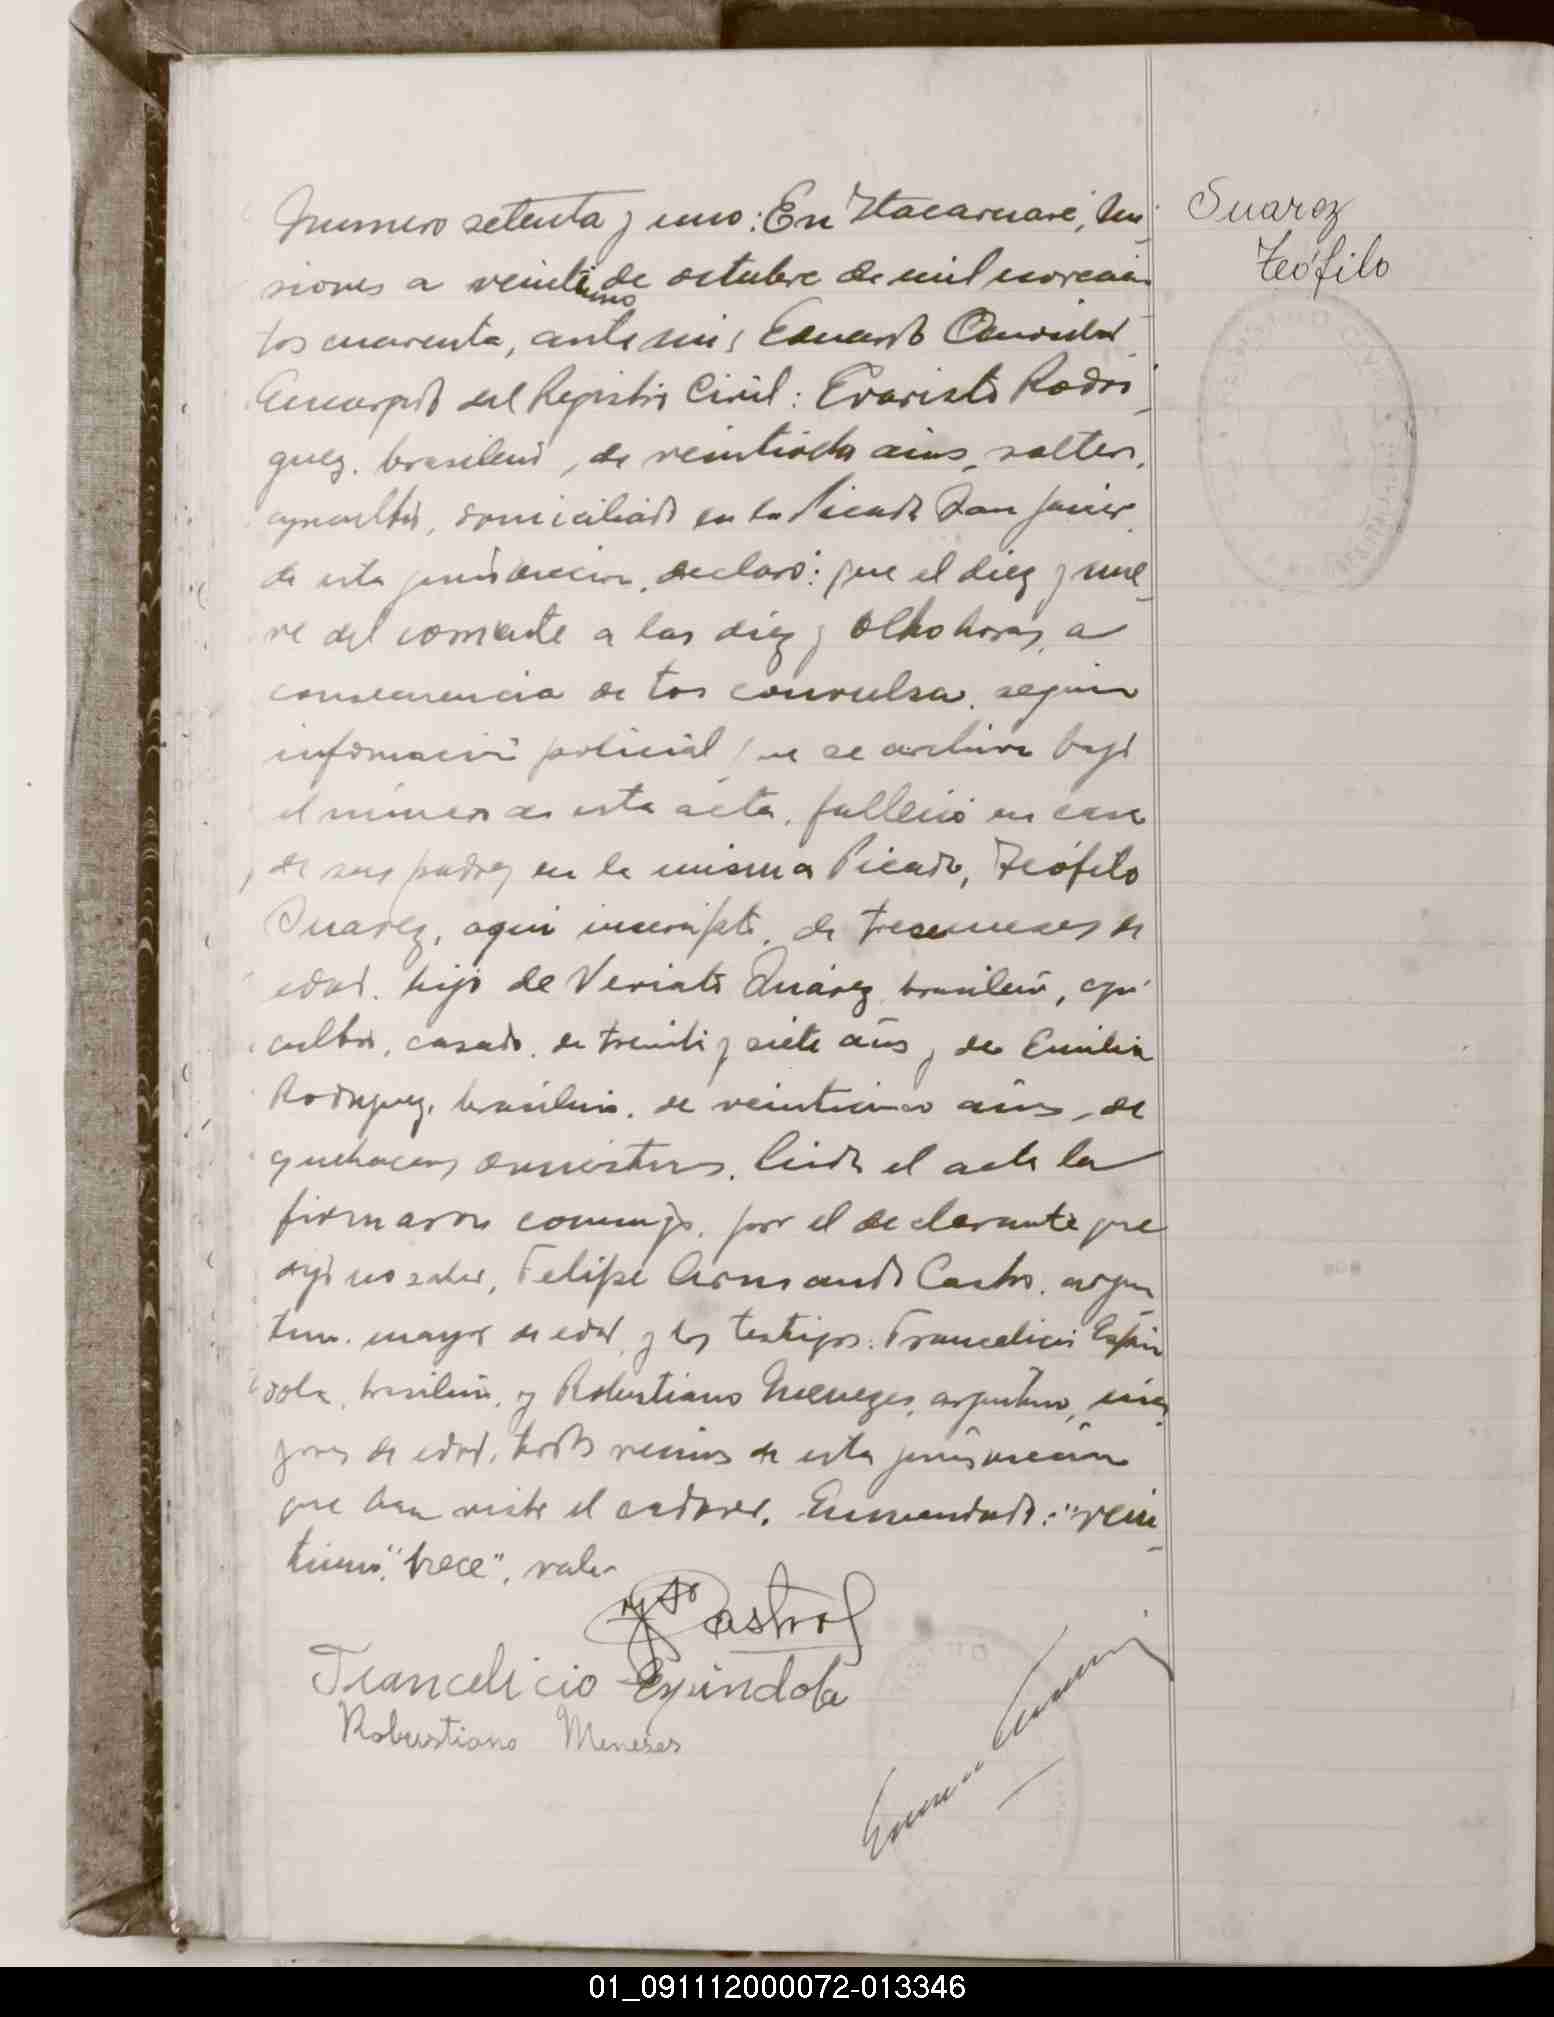 Numero setenta y uno: En Itacaruaré, Mi-
siones a veinti uno de octubre de mil novecien-
tos cuarenta, ante mi, Eduardo
Encargado del Registro Civil: Evaristo Rodri-
guez, brasileño, de veintiocho años, soltero,
agricultor, domiciliado en la Picada San Javier
de esta jurisdiccion, declaró: que el diez y nue-
ve del corriente a las diez y ocho horas, a
consecuencia de tos convulsa, segun
informacion policial que se archiva bajo
el número de esta acta, falleció en casa
de sus padres en la misma Picada, Teófilo
Suarez, aqui inscripto, de trece meses de
edad, hijo de Veriato Suárez, brasileño, agri
cultor, casado, de treinta y siete años y de Emilia
Rodriguez, brasileña, de veinticinco años, de
quehaceres domésticos. Leida el acta la
firmaron conmigo, por el declarante que
dijo no saber, Felipe Armando Castro, argen
tino, mayor de edad, y los testigos: Francelicio Espin
dola, brasileño, y Robustiano Menezes, argentino, ma-
yores de edad, todos vecinos de esta jurisdiccion
que han visto el cadaver. Enmendado: "vein-
tiuno", "trece", vale.
Castro
Francelicio Espindola
Robustiano Meneses
Suarez
Teófilo
01_091112000072-013346